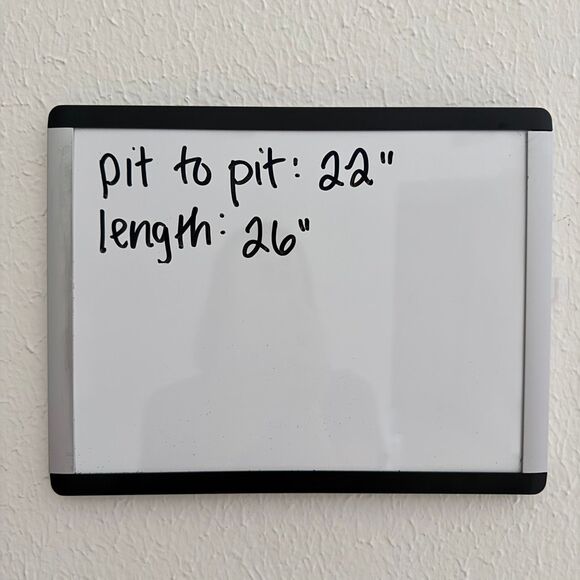 pit to pit: 22"
length: 26"